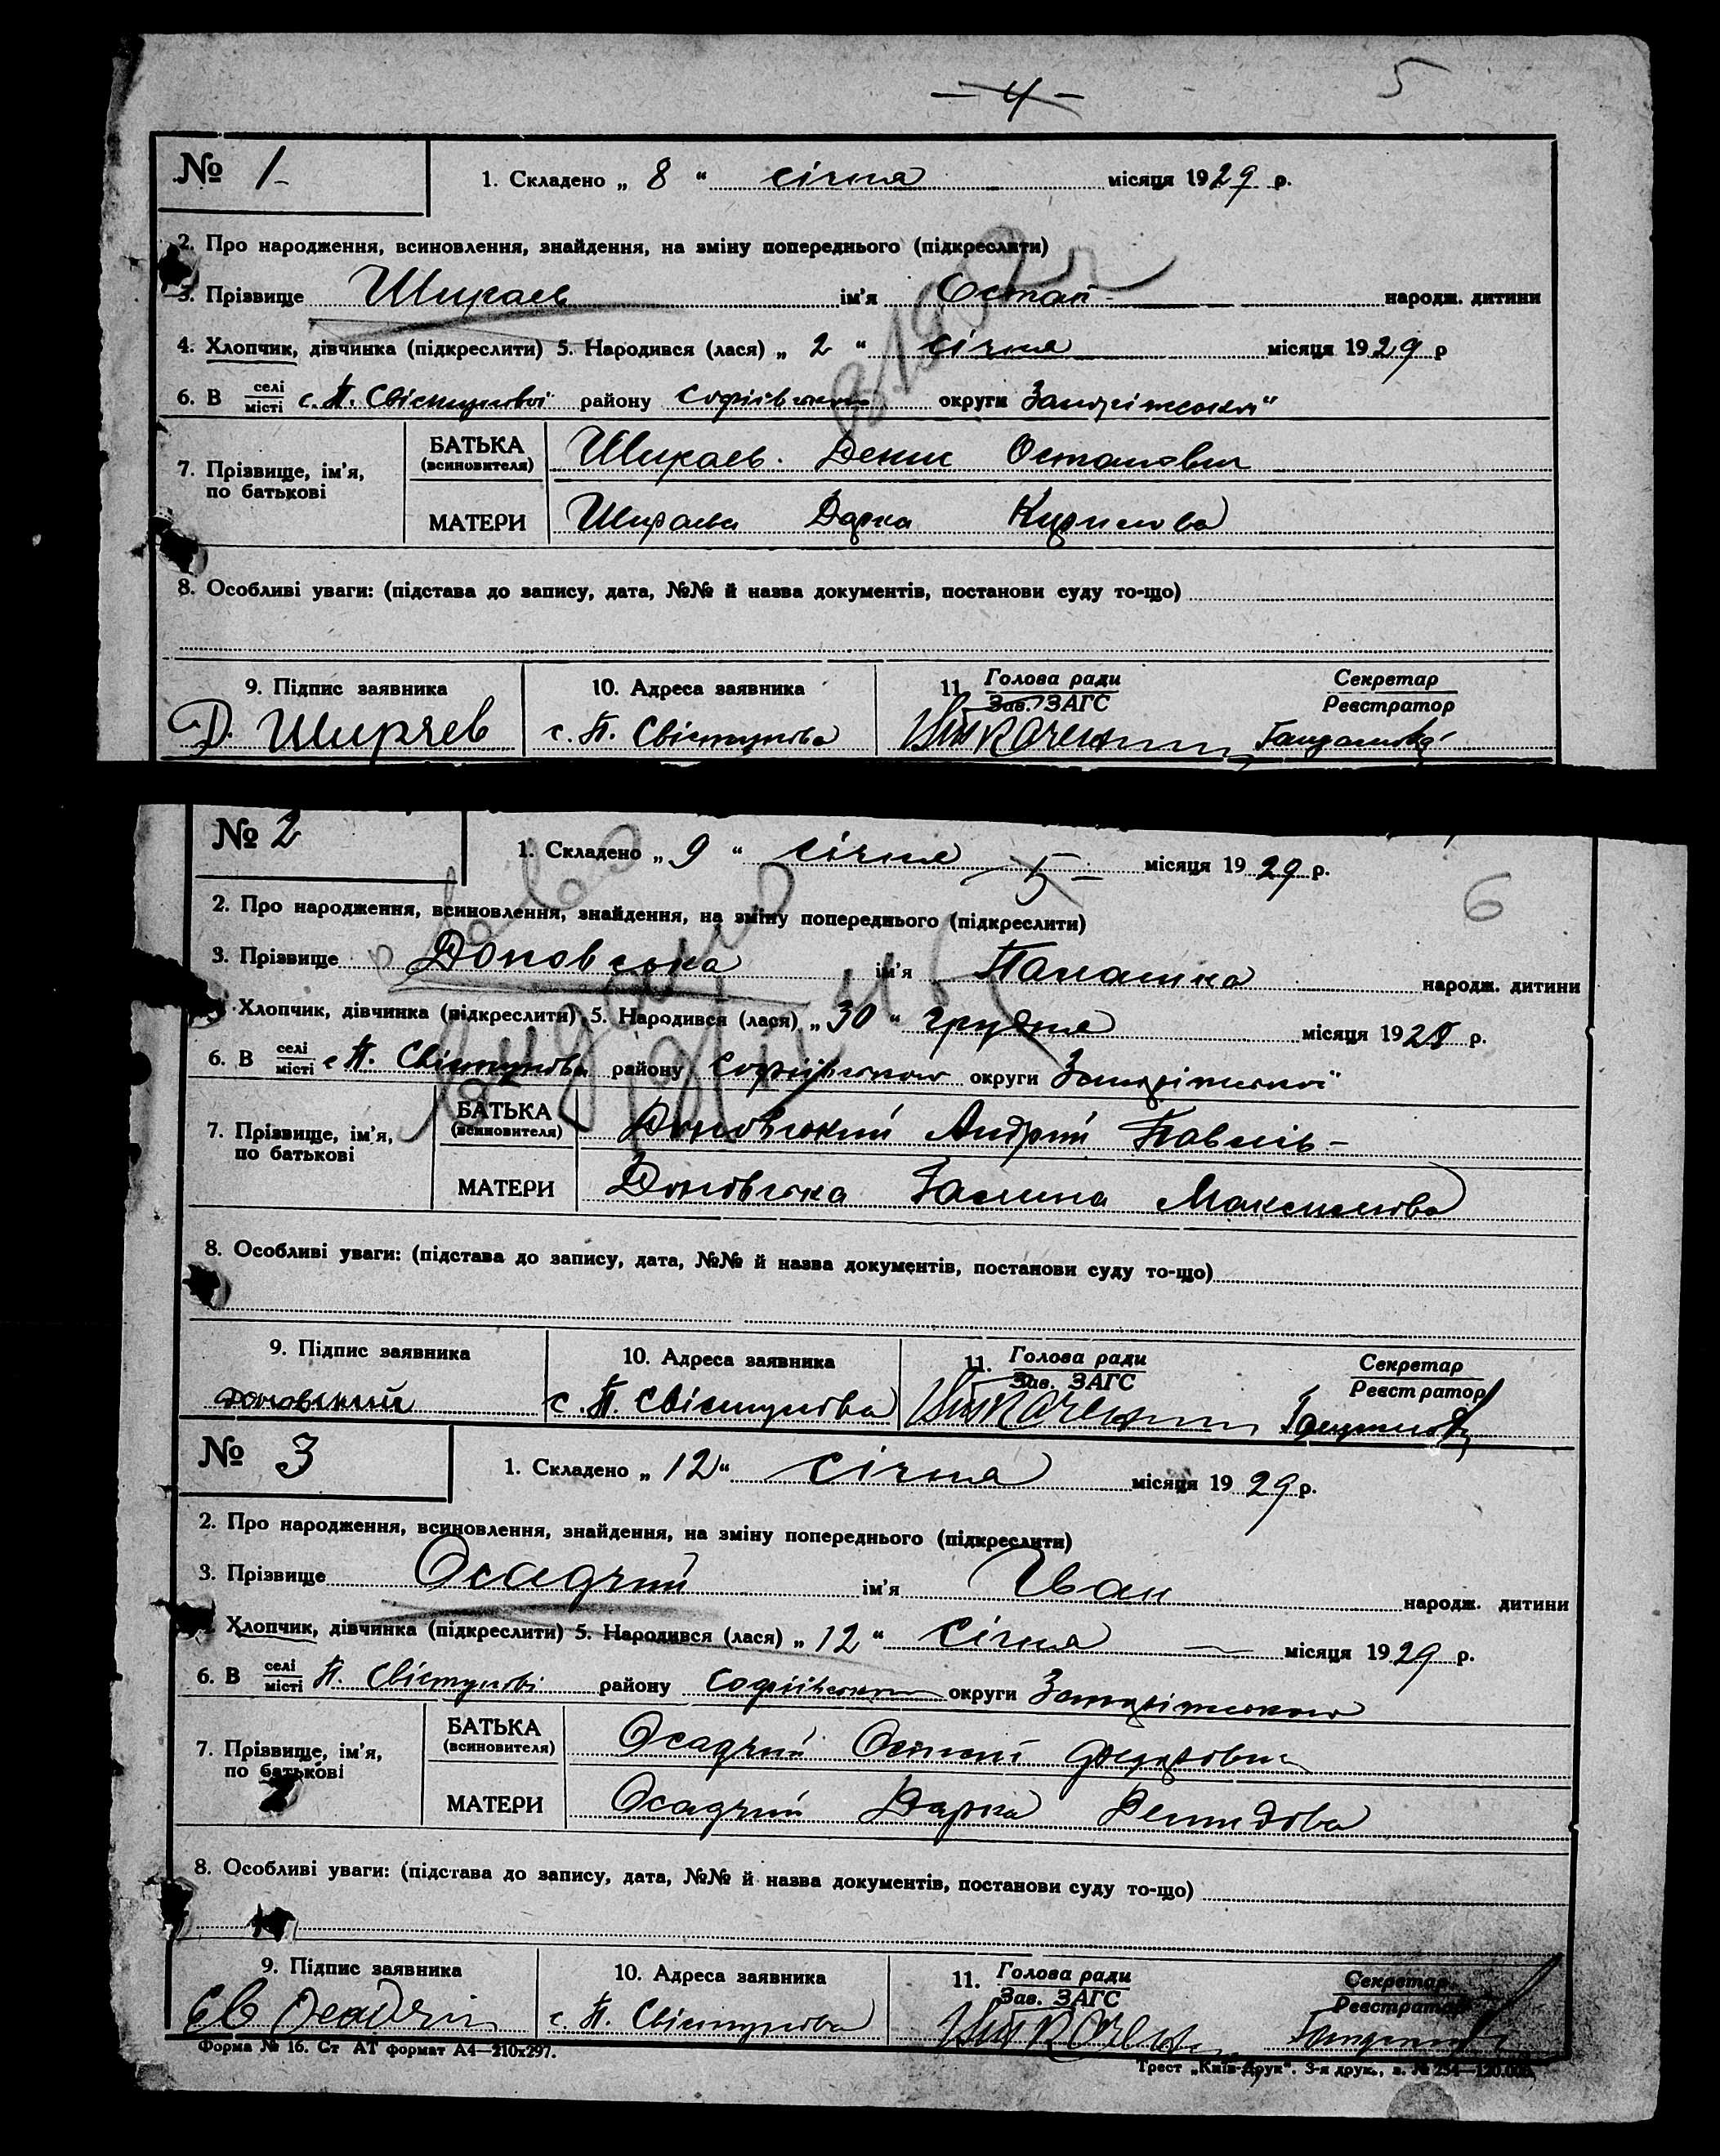 — 4 —
5
№ 1
1. Складено „ 8 “ січня місяця 1929 р.
2. Про народження, всиновлення, знайдення, на зміну попереднього (підкреслити)
3. Прізвище Шираєв ім'я Остап народж. дитини
4. Хлопчик, дівчинка (підкреслити) 5. Народився (лася) „ 2 “ січня місяця 1929 р
6. В селі місті с. П. Свістунової району Софіївського округи Запоріжської
7. Прізвище, ім'я, по батькові
БАТЬКА (всиновителя) Шираєв Денис Остапович
МАТЕРИ Шираєва Дарка Кирилова
8. Особливі уваги: (підстава до запису, дата, №№ й назва документів, постанови суду то-що)
9. Підпис заявника 10. Адреса заявника 11. Голова ради Зав. ЗАГС Секретар Реєстратор
Д. Ширяєв с. П. Свістунова
№ 2
1. Складено „ 9 “ січня місяця 1929 р.
5
6
2. Про народження, всиновлення, знайдення, на зміну попереднього (підкреслити)
3. Прізвище Доновська ім'я народж. дитини
Хлопчик, дівчинка (підкреслити) 5. Народився (лася) „ 30 “ грудня місяця 1928 р.
6. В селі місті с П. Свістунова району Софіївського округи Запоріжської
7. Прізвище, ім'я, по батькові
БАТЬКА (всиновителя) Доновський Андрій Павлів
МАТЕРИ Доновська Галина Максимова
8. Особливі уваги: (підстава до запису, дата, №№ й назва документів, постанови суду то-що)
9. Підпис заявника 10. Адреса заявника 11. Голова ради Зав. ЗАГС Секретар Реєстратор
доновський с. П. Свістунова
№ 3
1. Складено „ 12 “ січня місяця 1929 р.
2. Про народження, всиновлення, знайдення, на зміну попереднього (підкреслити)
3. Прізвище Осадчий ім'я Іван народж. дитини
Хлопчик, дівчинка (підкреслити) 5. Народився (лася) „ 12 “ січня місяця 1929 р.
6. В селі місті П. Свістунові району Софіївського округи Запоріжського
7. Прізвище, ім'я, по батькові
БАТЬКА (всиновителя) Осадчий
МАТЕРИ Осадчий Дарка Демидова
8. Особливі уваги: (підстава до запису, дата, №№ й назва документів, постанови суду то-що)
9. Підпис заявника 10. Адреса заявника 11. Голова ради Зав. ЗАГС Секретар Реєстратор
Осадчій с. П. Свістунова
Форма № 16. Ст АТ формат А4—210х297.
Трест „Київ-Друк“. 3-я друк., з. № 254—120.000.